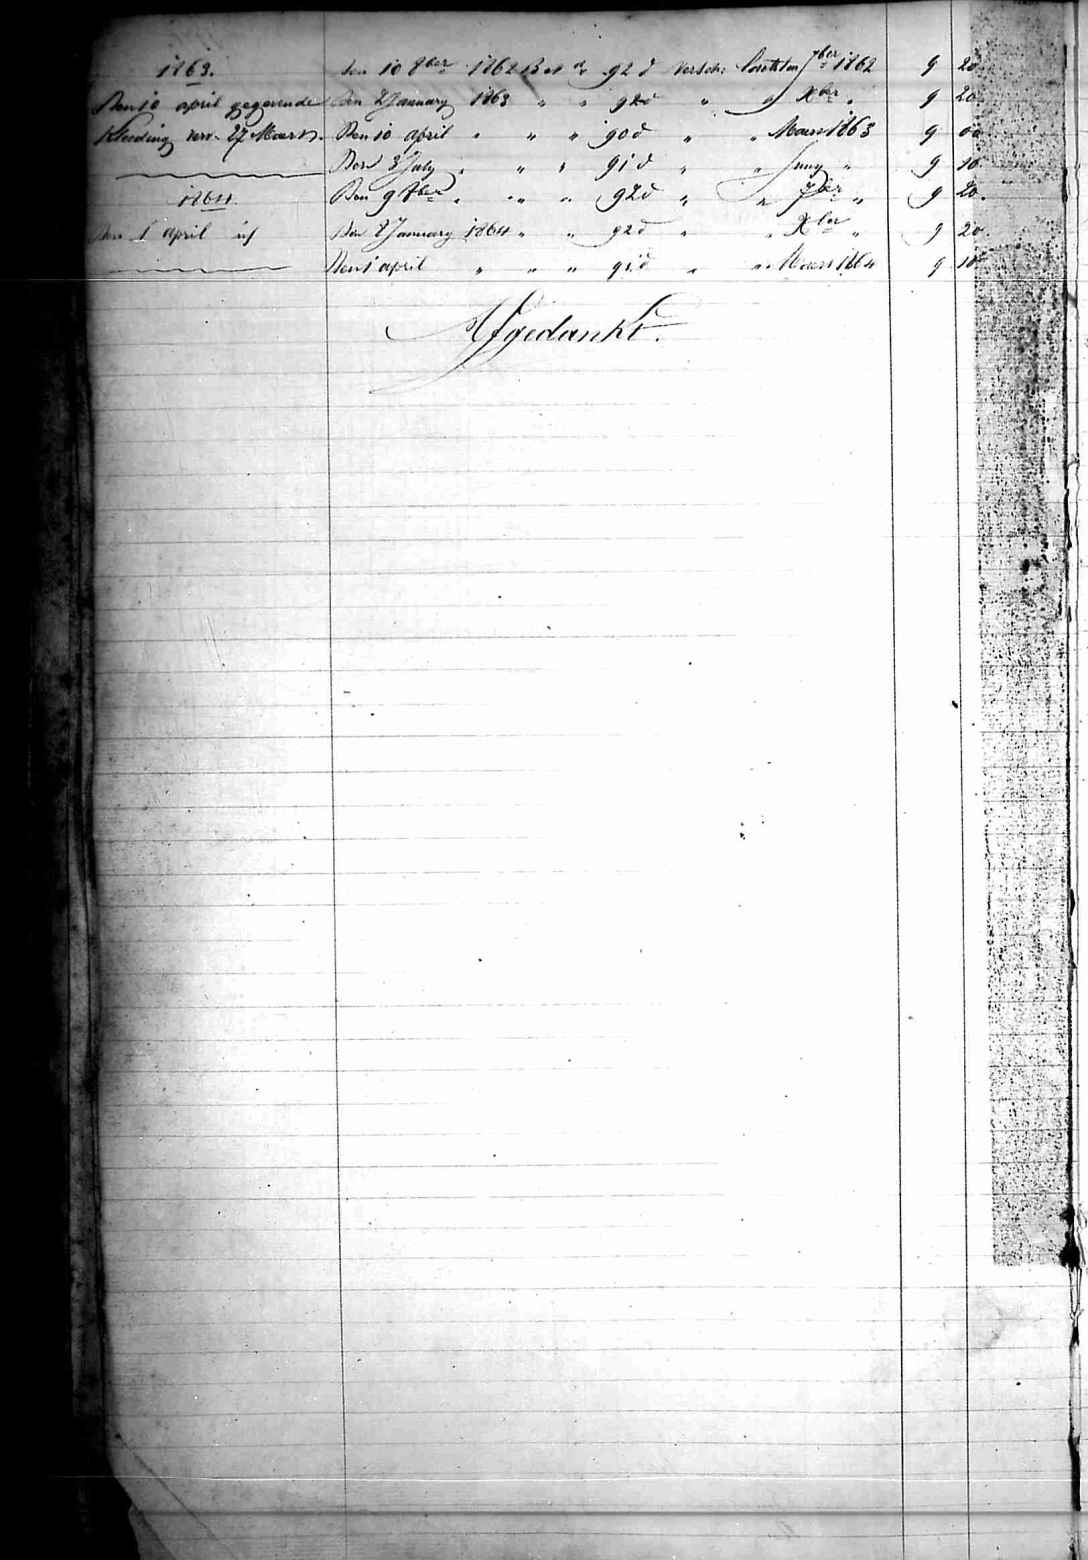 1863. den 10 8ber 1862 B et dr 92 d Versch: 7ber 1862 9 20
Den 10 april gegevende Den 2 January 1863 " " 92 d " " Xber " 9 20
Kleeding verv. 27 Maert. Den 10 april " " " 90 d " " Maert 1863 9 00
Den 3 July " " " 91 d " " Juny " 9 10
1864. Den 9 8ber " " " 92 d " " 7ber " 9 20.
Den 1 april id Den 2 January 1864 " " 92 d " " Xber " 9 20
Den 1 april " " " 91 d " " Maert 1864 9 10
Afgedankt.